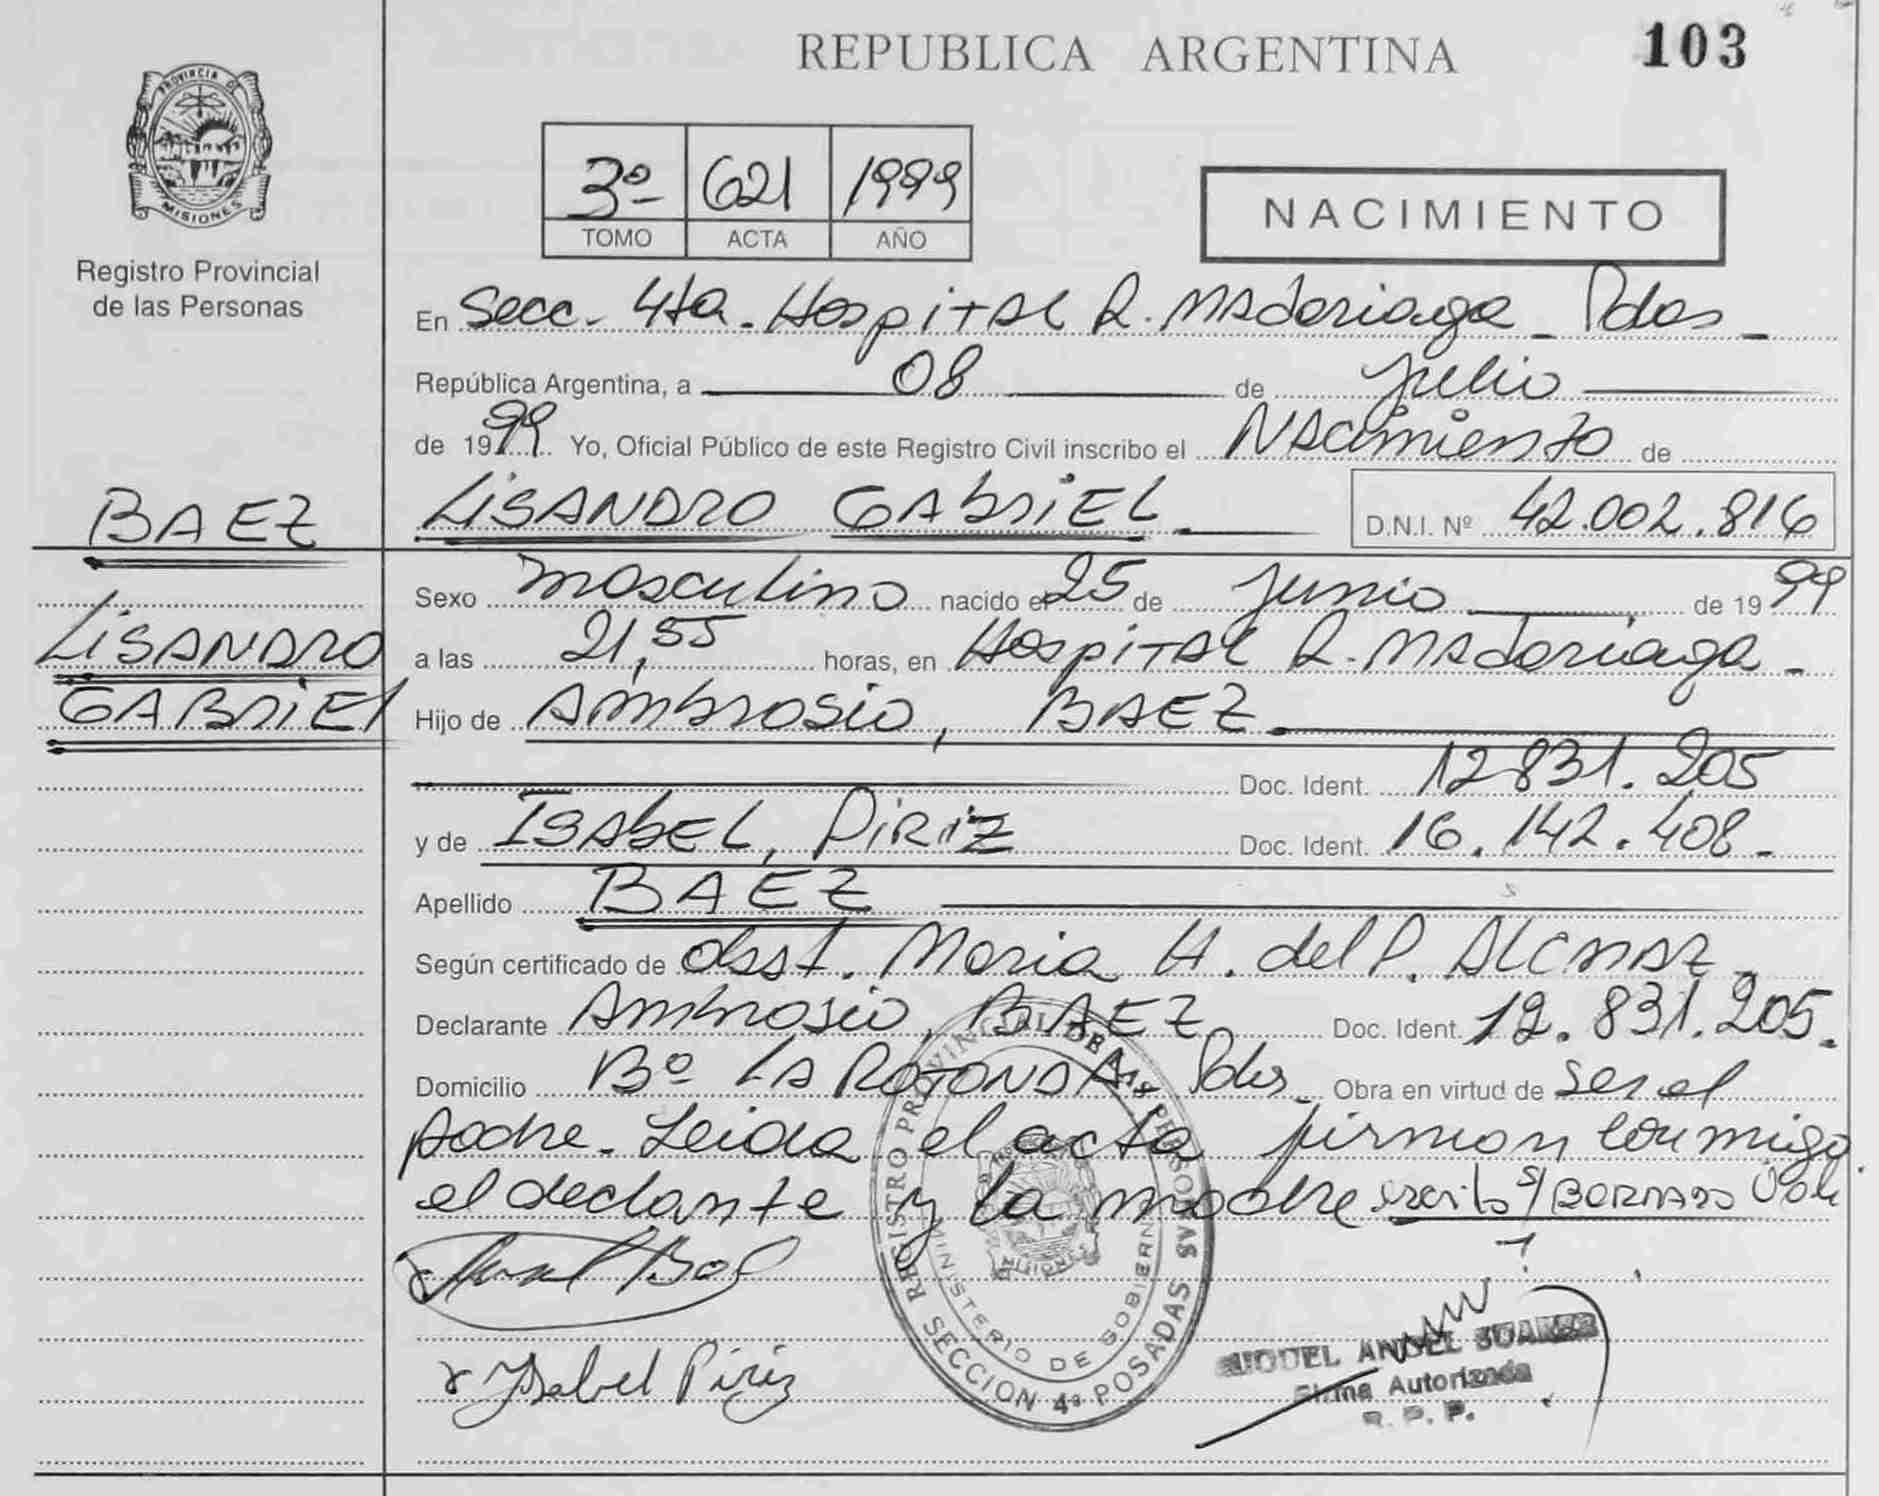 REPUBLICA ARGENTINA
103
PROVINCIA DE
MISIONES
Registro Provincial
de las Personas
3º 621 1999
TOMO ACTA AÑO
NACIMIENTO
En Secc. 4ta. Hospital R. Madariaga - Pdas -
República Argentina, a 08 de Julio
de 1999 Yo, Oficial Público de este Registro Civil inscribo el Nacimiento de
BAEZ
LISANDRO GABRIEL
D.N.I. Nº 42.002.816
LISANDRO
GABRIEL
Sexo masculino nacido el 25 de Junio de 1999
a las 21,55 horas, en Hospital R. Madariaga -
Hijo de Ambrosio, BAEZ
Doc. Ident. 12.831.205
y de ISABEL, PIRIZ Doc. Ident. 16.142.408.-
Apellido BAEZ
Según certificado de obst. Maria H. del P. ALCARAZ
Declarante Ambrosio, BAEZ Doc. Ident. 12.831.205.
Domicilio Bº LA ROTONDA - Pdas - Obra en virtud de ser el
padre. Leida el acta firman conmigo
el declante y la madre s/
Ysabel Piriz
REGISTRO PROVINCIAL DE LAS PERSONAS
SECCION 4ª POSADAS
MINISTERIO DE GOBIERNO
MISIONES
MIGUEL ANGEL SUAREZ
Firma Autorizada
R. P. P.